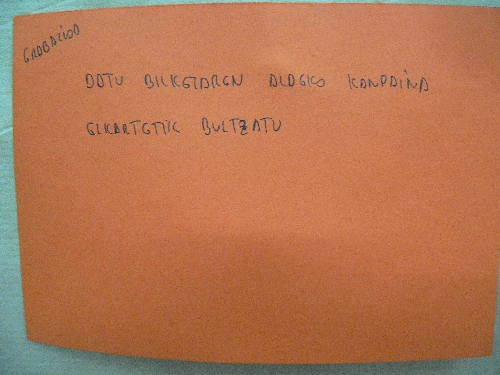 GRABAZIOA
DATU BILKETAREN ALDEKO KANPAINA
ELKARTETIK BULTZATU